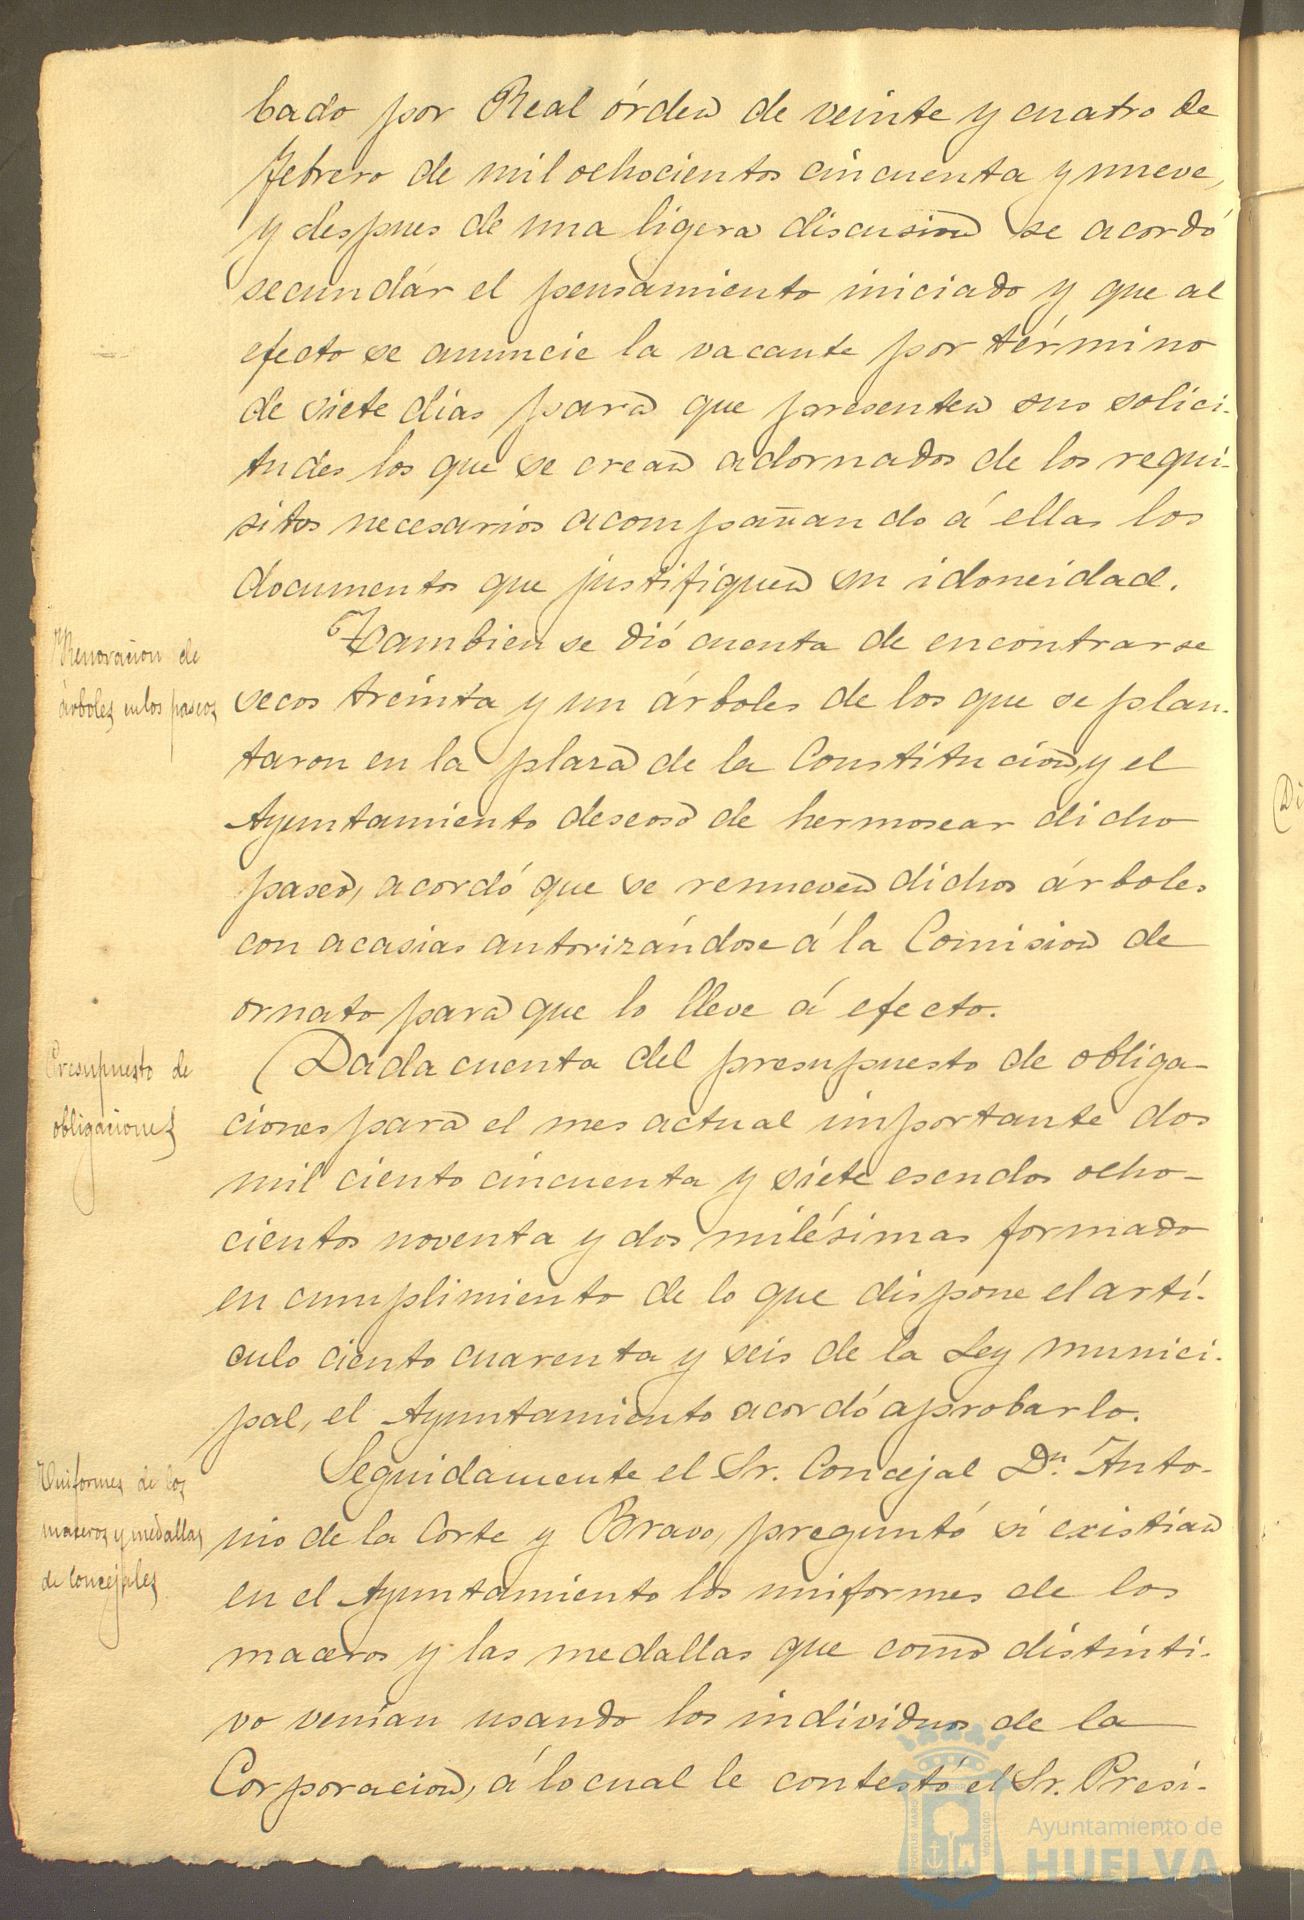 bado por Real órden de veinte y cuatro de
febrero de mil ochocientos cincuenta y nueve,
y despues de una ligera discusion se acordó
secundár el pensamiento iniciado y que al
efecto se anuncie la vacante por término
de siete dias para que presenten sus solici-
tudes los que se crean adornados de los requi-
sitos necesarios acompañando á ellas los
documentos que justifiquen su idoneidad.
Renovacion de
árboles en los paseos
Tambien se dió cuenta de encontrarse
secos treinta y un árboles de los que se plan-
taron en la plaza de la Constitucion, y el
Ayuntamiento deseoso de hermosear dicho
paseo, acordó que se renueven dichos árboles
con acasias autorizándose á la Comision de
ornato para que lo lleve á efecto.
Presupuesto de
obligaciones
Dada cuenta del presupuesto de obliga-
ciones para el mes actual importante dos
mil ciento cincuenta y siete escudos ocho-
cientos noventa y dos milésimas formado
en cumplimiento de lo que dispone el artí-
culo ciento cuarenta y seis de la Ley munici-
pal, el Ayuntamiento acordó aprobarlo.
Uniformes de los
maceros y medallas
de Concejales
Seguidamente el Sr. Concejal Dn. Anto-
nio de la Corte y Bravo, preguntó si existian
en el Ayuntamiento los uniformes de los
maceros y las medallas que como distinti-
vo venian usando los individuos de la
Corporacion, á lo cual le contestó el Sr. Presi-
Ayuntamiento de
HUELVA